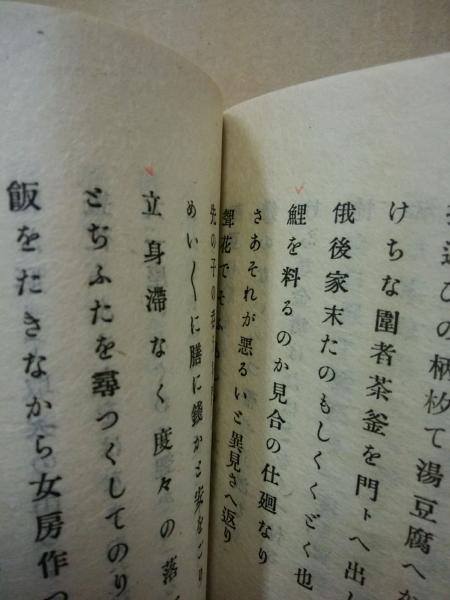 びの柄杓て湯豆腐へ
けちな圍者茶釜を門ト へ出し
俄後家末たのもしくくどく也
鯉を料るのか見合の仕廻なり
さあそれが悪るいと異見さへ返り
聟花で
先の子の
めい〱に膳に錢かと
立身滞なく度々の落
とぢふたを尋つくしてのり
飯をたきなから女房作